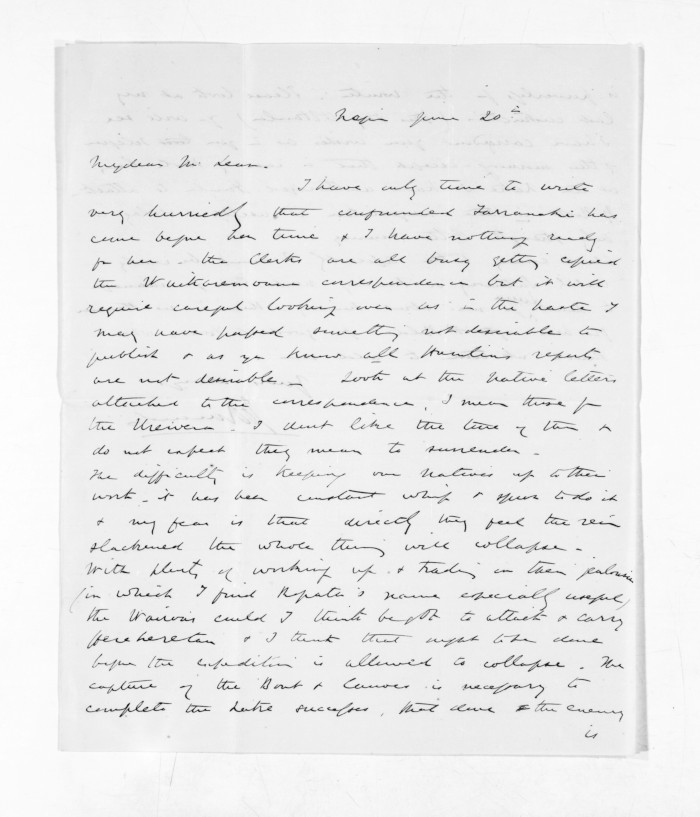 Napier June 20th
My dear Mr Lean.
I have only time to write
very hurriedly that confounded Tarranaki has
come before her time & I have nothing ready
for her - the Clerks are all busy getting copied
the Waikaremoana correspondence but it will
require careful looking over as in the haste I
may have passed something not desirable to
publish & as you know all Hamlins reports
are not desirable - Look at the Native letters
attached to the correspondence, I mean those fr
the Urewera. I dont like the tone of them &
do not expect they mean to surrender -
The difficulty is keeping our Natives up to their
work - it has been constant whip & spur to do it
& my fear is that directly they feel the rein
slackened the whole thing will collapse -
With plenty of working up & trading on their jealousies
(in which I find Ropata's name especially useful)
the Wairoas could I think be got to attack & carry
Herehereтau & I think that ought to be done
before the expedition is allowed to collapse. The
capture of the Boat & Canoes is necessary to
complete the Lake successes, that done & the enemy
is